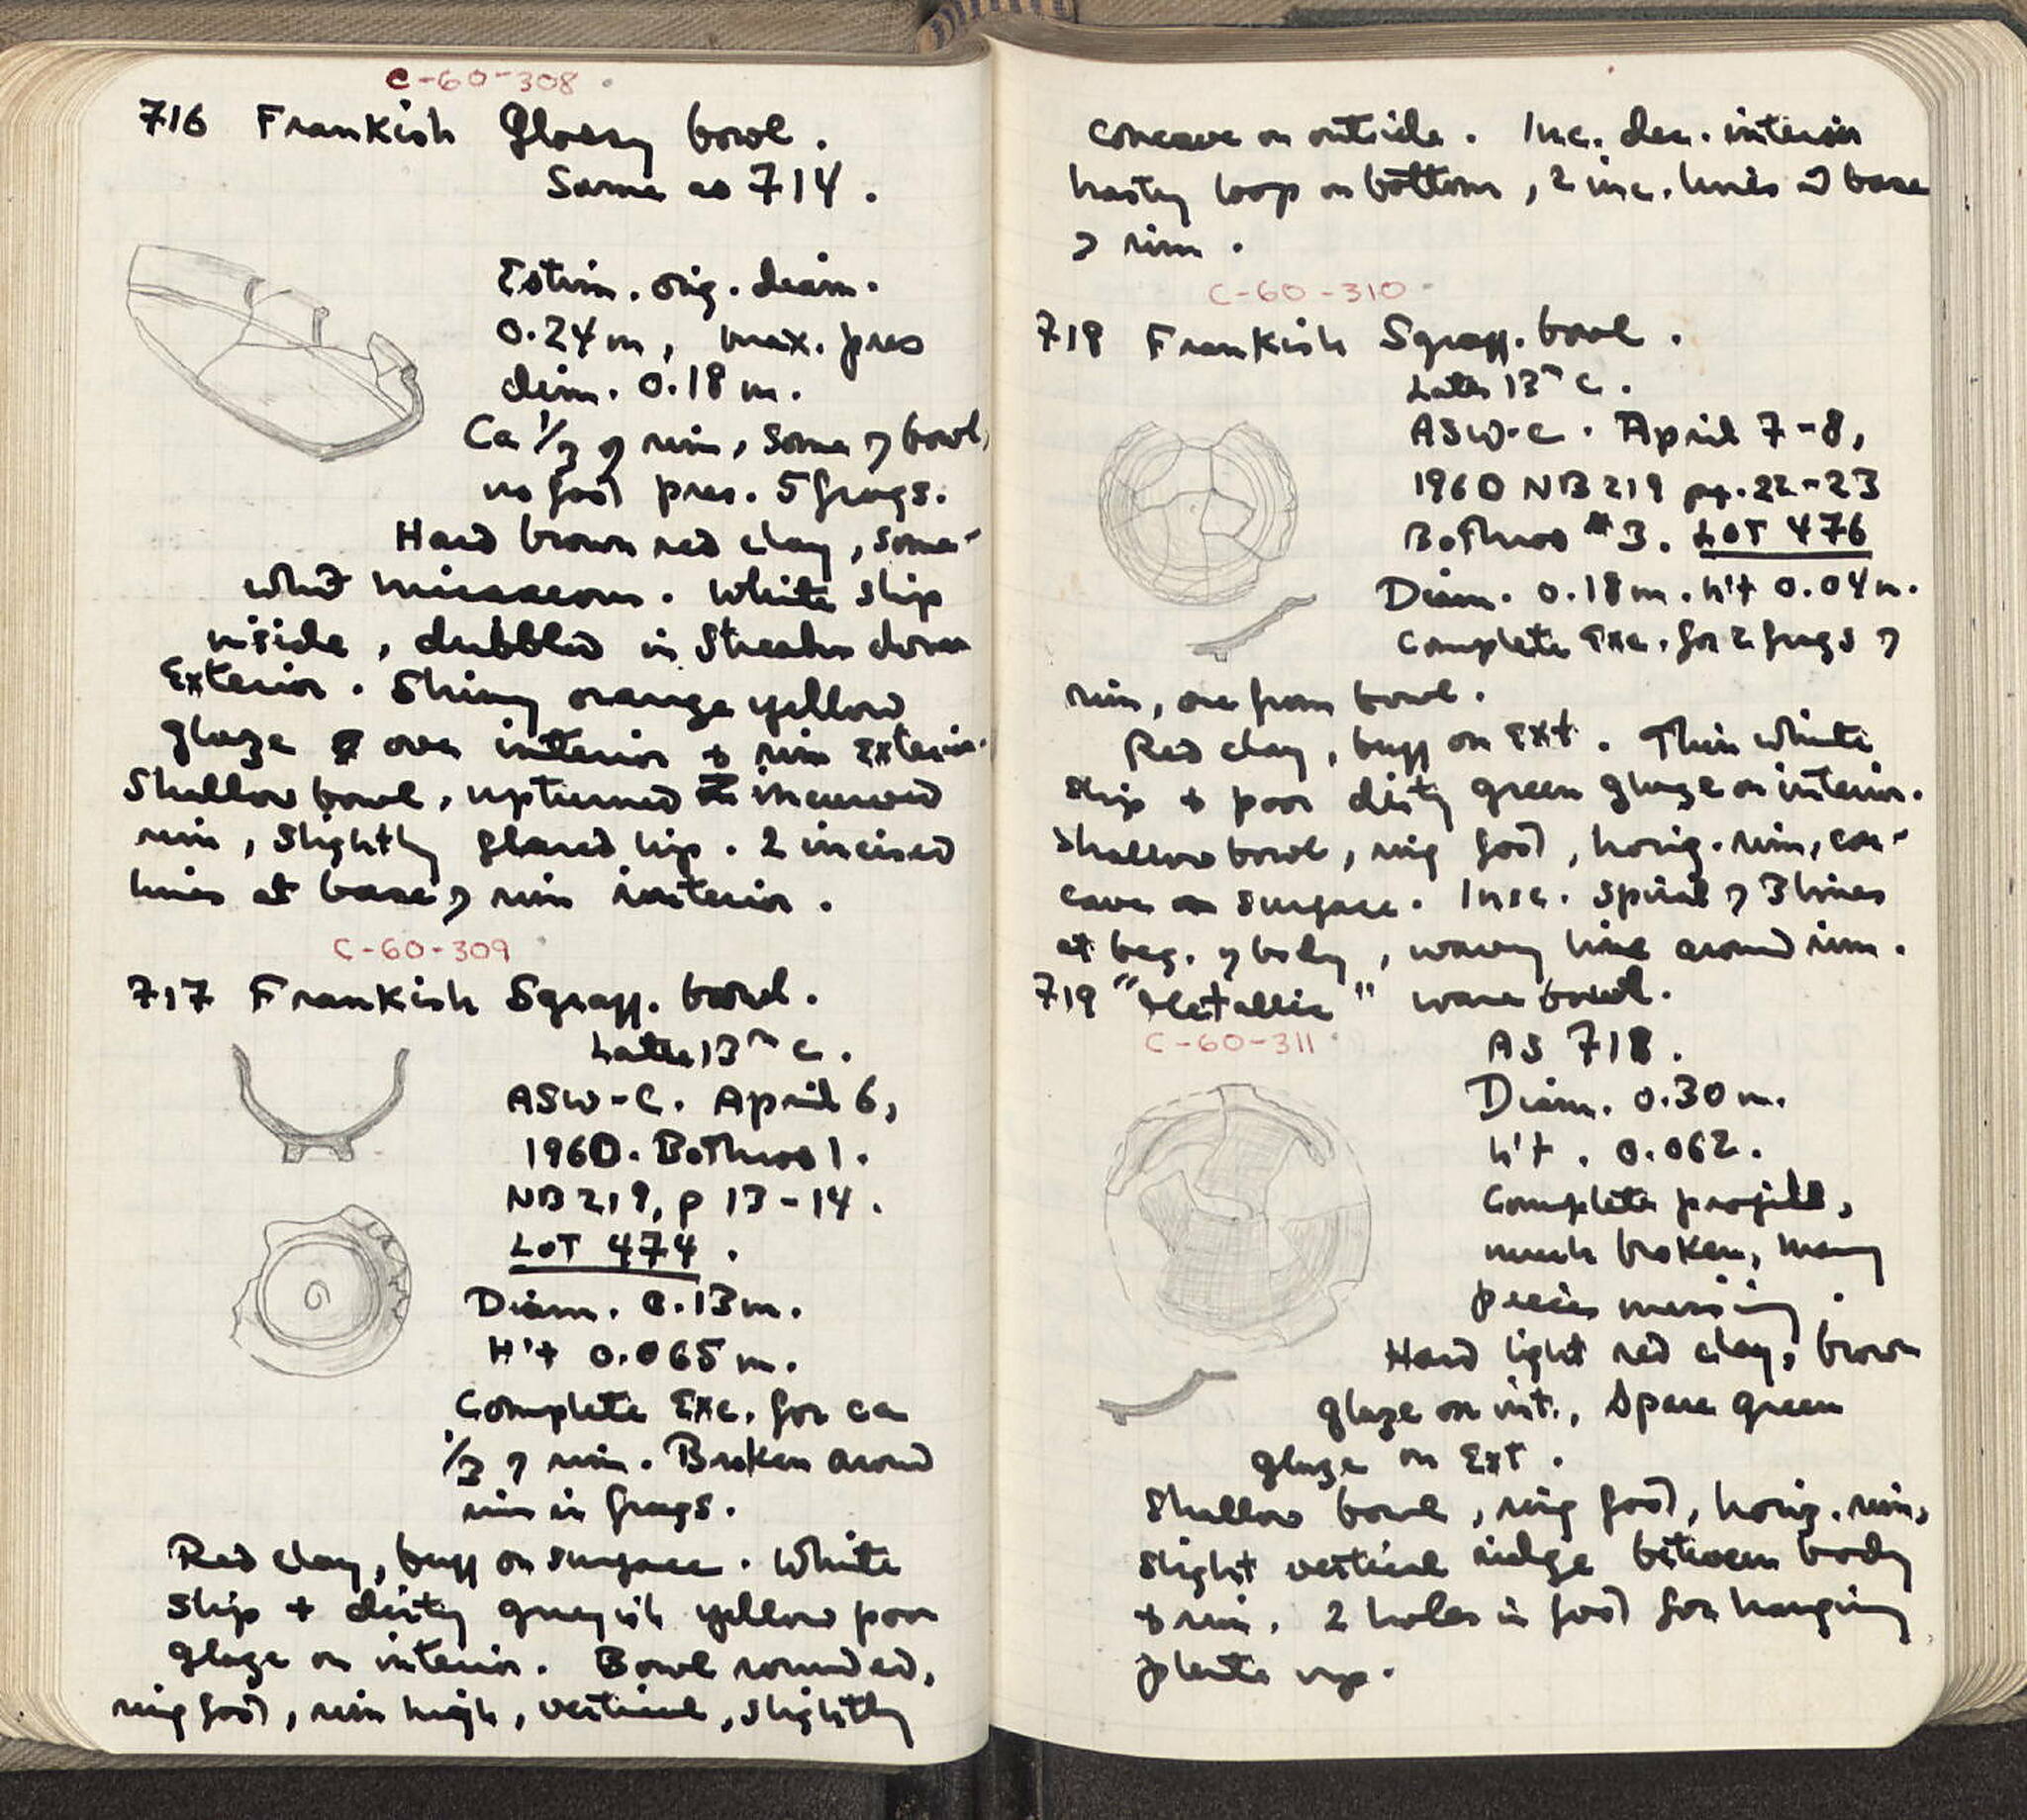 C-60-308
716 Frankish Glossy bowl.
Same as 714.
Estim. orig. diam.
0.24 m, max. pres
dim. 0.18 m.
Ca 1/3 of rim, some of bowl,
no foot pres. 5 frags.
Hard brown red clay, some-
what micaceous. White slip
inside, dubbled in streaks down
Exterior. Shiny orange yellow
glaze over interior + rim exterior.
Shallow bowl, upturned incurved
rim, slightly flared lip. 2 incised
lines at base of rim interior.
C-60-309
717 Frankish Sgraff. bowl.
Late 13th c.
ASW-C. April 6,
1960. Bothros 1.
NB 219, p 13-14.
LOT 474.
Diam. 0.13 m.
H't 0.065 m.
Complete Exc. for ca
1/3 of rim. Broken around
rim in frags.
Red clay, buff on surface. White
slip + dirty greyish yellow poor
glaze on interior. Bowl rounded,
ring foot, rim high, vertical, slightly
concave on outside. Inc. dec. interior
hasty loop on bottom, 2 inc. lines at base
of rim.
C-60-310
718 Frankish Sgraff. bowl.
Late 13th c.
ASW-C. April 7-8,
1960 NB 219 pp. 22-23
Bothros #3. LOT 476
Diam. 0.18 m. h't 0.04 m.
Complete Exc. for 2 frags of
rim, one from bowl.
Red clay, buff on Ext. Thin white
slip + poor dirty green glaze on interior.
Shallow bowl, ring foot, horiz. rim, con-
cave on surface. Inc. spiral of 3 lines
at beg. of body, wavy line around rim.
719 "Metallic" ware bowl.
C-60-311
AS 718.
Diam. 0.30 m.
h't. 0.062.
Complete profile,
much broken, many
pieces missing.
Hard light red clay, brown
glaze on int., sparse green
glaze on Ext.
Shallow bowl, ring foot, horiz. rim,
slight vertical ridge between body
+ rim. 2 holes in foot for hanging
plate up.